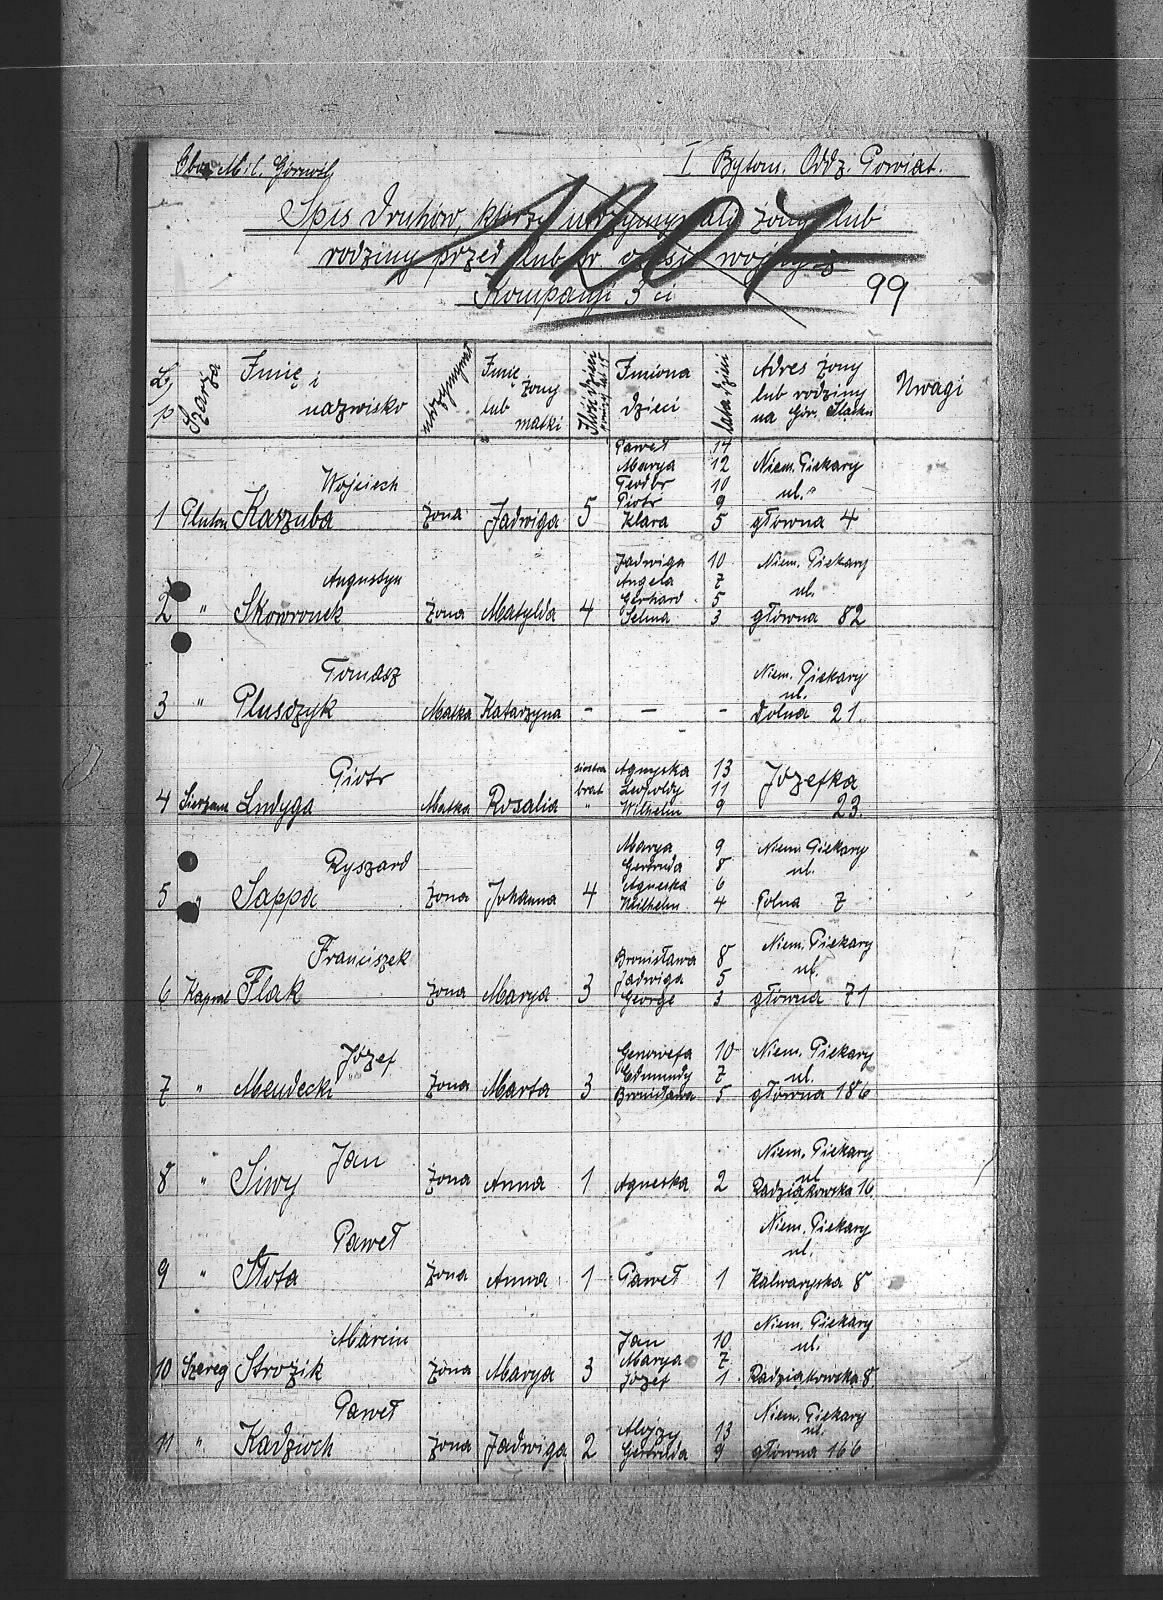 Obóz Mil. Górnośl. I Bytom. Oddz. Powiat.
Spis Druhów, którzy utrzymywali żony lub
rodziny przed lub w czasie wojny z
Kompanji 3 ci
1201
99
L.p. Szarża Imię i nazwisko utrzymywał Imię żony lub matki Ilość dzieci Imiona dzieci lata dzieci Adres żony lub rodziny na Gór. Śląsku Uwagi
Paweł 14
Marya 12 Niem. Piekary
Wojciech Teodor 10 ul.
Piotr 9
1 Pluton Kaszuba żona Jadwiga 5 Klara 5 główna 4
Jadwiga 10 Niem. Piekary
Augustyn Angela 7
Gerhard 5 ul.
2 " Skowronek żona Matylda 4 Selma 3 główna 82
Tomasz Niem. Piekary
ul.
3 " Plusczyk Matka Katarzyna - - - Dolna 21.
siostra Agnyska 13 Józefka
Piotr brat Leopoldy 11
4 Sierżam Ludyga Matka Rosalia " Wilhelm 9 23.
Marya 9 Niem. Piekary
Ryszard Gertruda 8 ul.
Agneska 6
5 " Sappa żona Johanna 4 Wilhelm 4 Polna 7
Franciszek Niem. Piekary
Bronisława 8
Jadwiga 5 ul.
6 Kapral Flak żona Marya 3 George 3 główna 71
Józef Genowefa 10 Niem. Piekary
Edmundy 7 ul.
7 " Mendecki żona Marta 3 Bronisława 5 główna 186
Jan Niem. Piekary
ul.
8 " Siwy żona Anna 1 Agneska 2 Radziąkowska 16
Paweł Niem. Piekary
ul.
9 " Słota żona Anna 1 Paweł 1 Kalwaryska 8
Marcin Niem. Piekary
Jan 10 ul.
Marya 7
10 Szereg Strozik żona Marya 3 Józef 1 Radziąkowska 8.
Paweł Niem. Piekary
Alojzy 13 ul.
11 " Kadzioch żona Jadwiga 2 Gertruda 9 główna 166